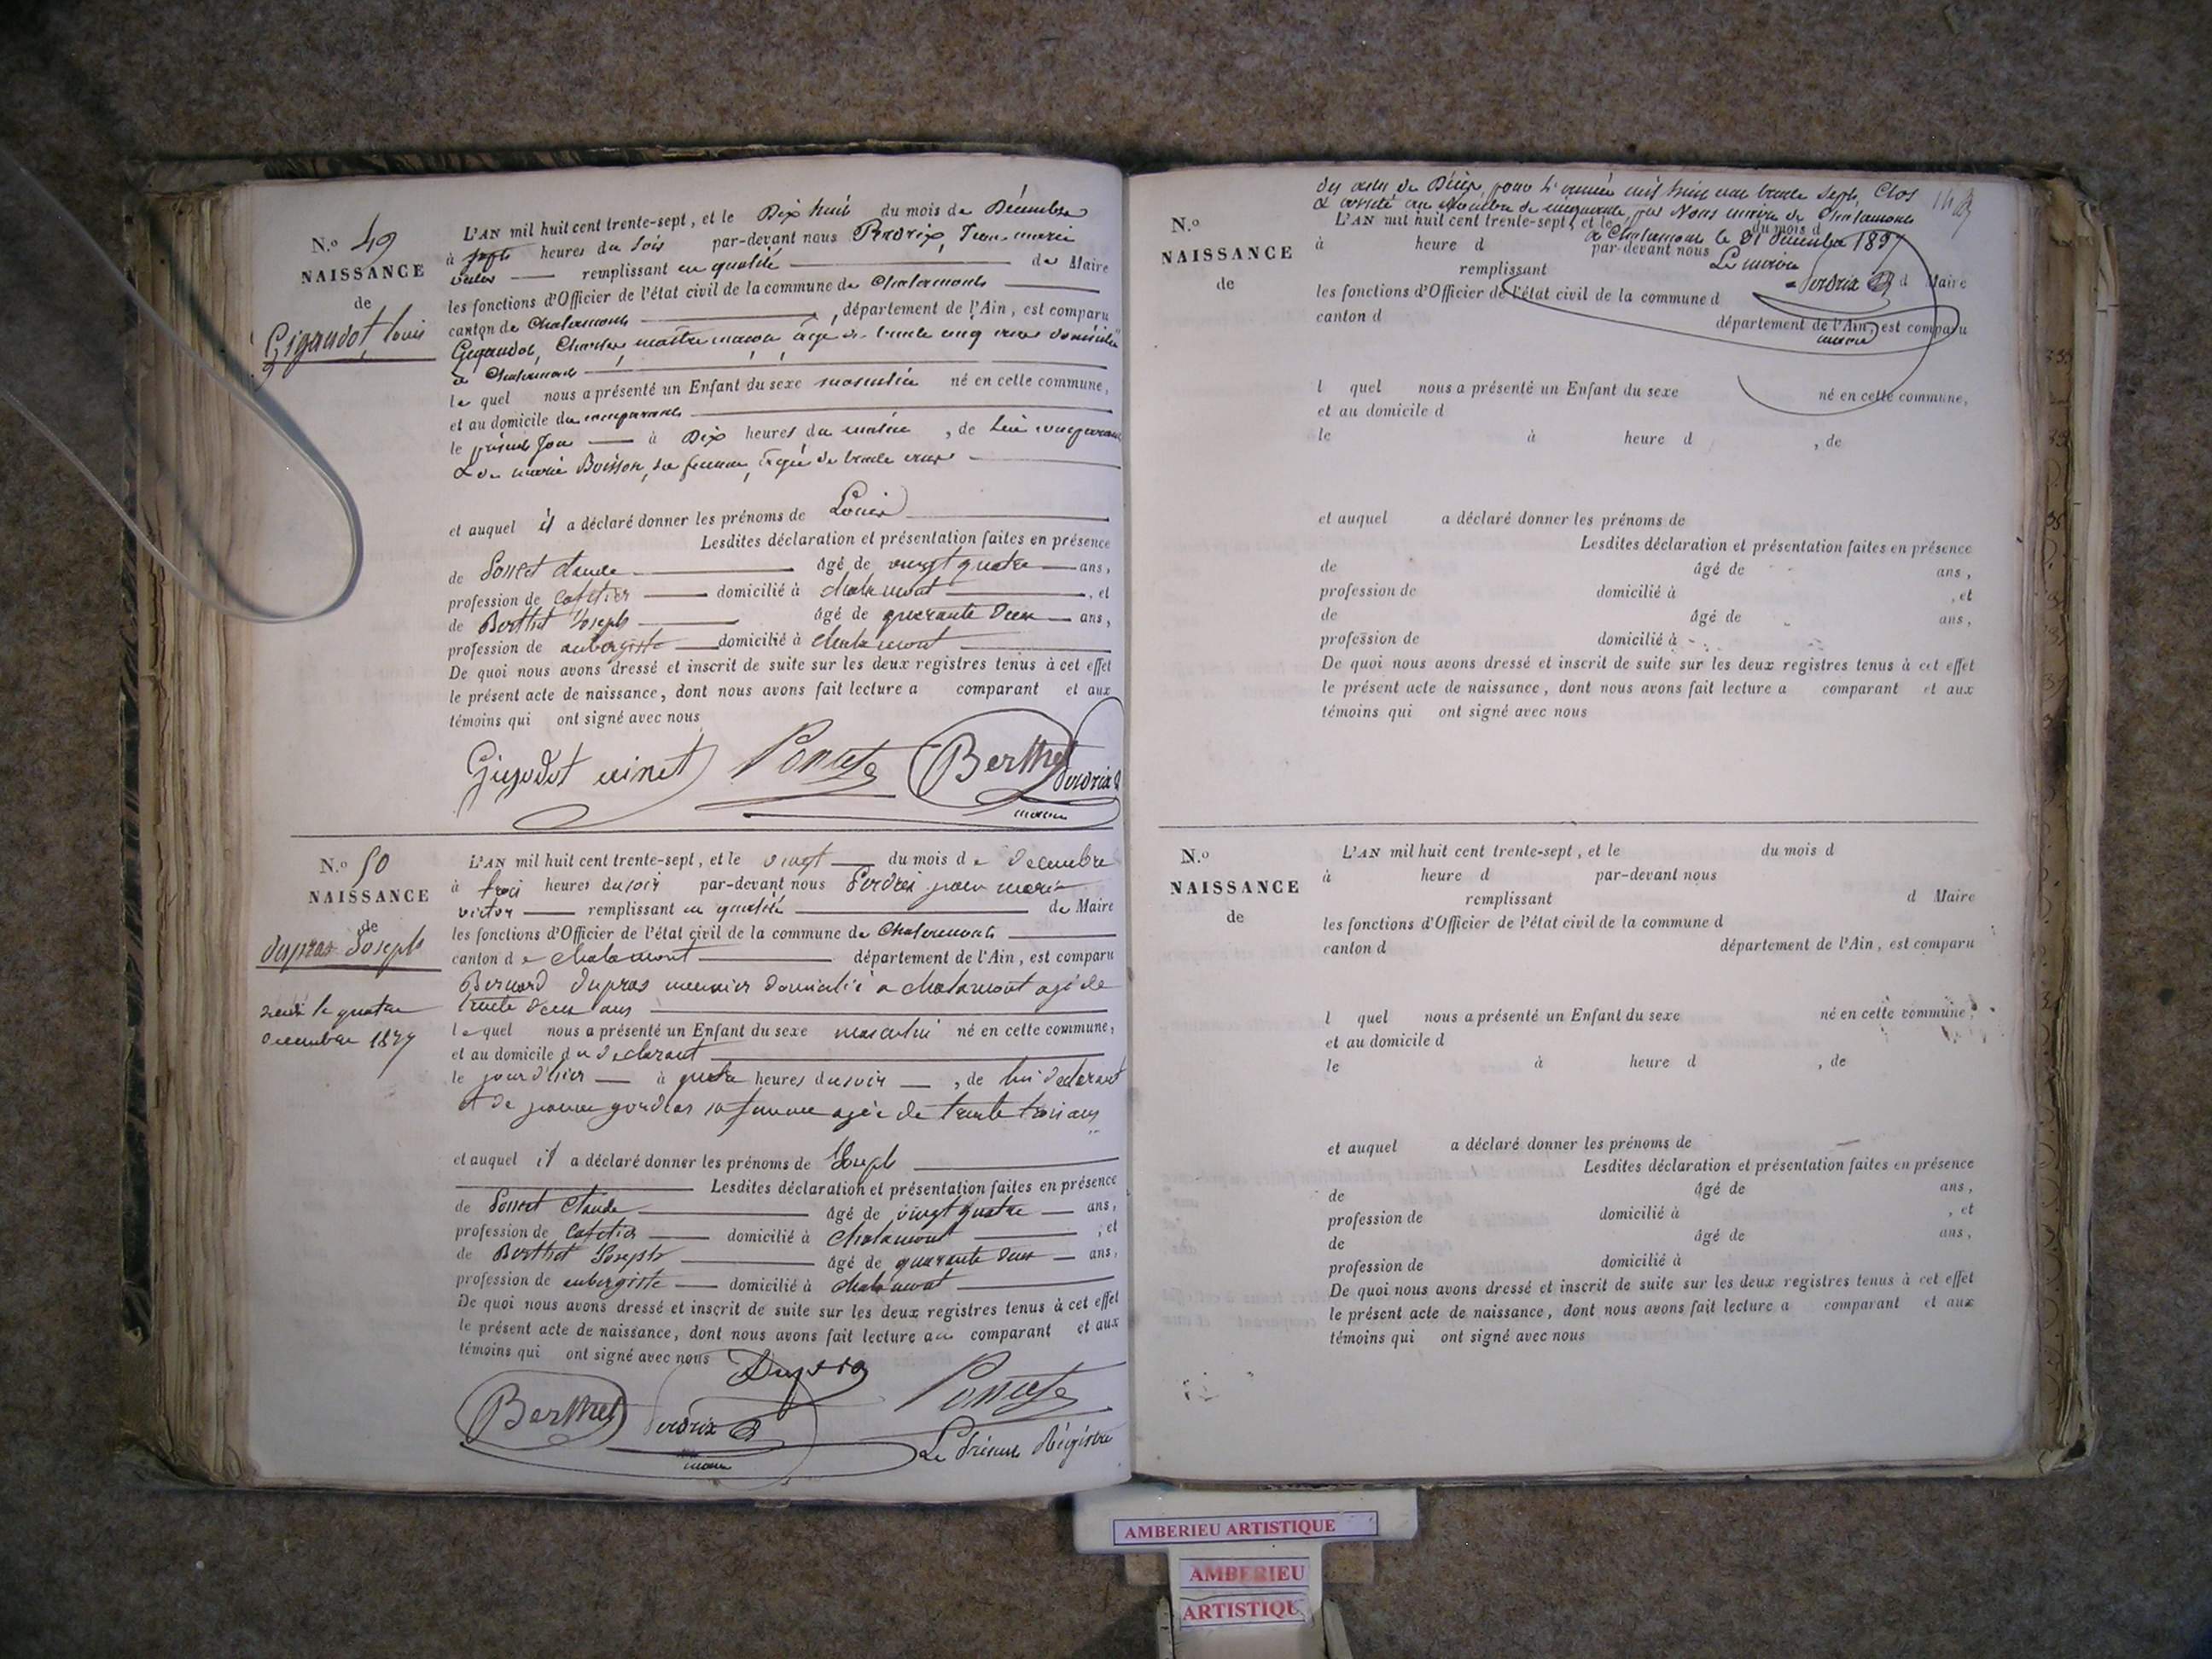 N.o 49
NAISSANCE
de
Gigaudot, Louis
L'AN mil huit cent trente-sept, et le Dix huit du mois de Décembre
à sept heures du soir par-devant nous Perdrix, Jean-marie
victor remplissant en qualité de Maire
les fonctions d'Officier de l'état civil de la commune de Chalamont
canton de Chalamont, département de l'Ain, est comparu
Gigaudot, Charles maître maçon âgé de trente cinq ans domicilié
à Chalamont
le quel nous a présenté un Enfant du sexe masculin né en cette commune,
et au domicile du comparant
le présent Jour à Dix heures du matin, de lui comparant
& de marie Buisson, sa femme, âgée de trente ans
et auquel il a déclaré donner les prénoms de Louis
Lesdites déclaration et présentation faites en présence
de Poncet Claude âgé de vingt quatre ans,
profession de Cafetier domicilié à chalamont, et
de Berthet Joseph âgé de quarante deux ans,
profession de aubergiste domicilié à chalamont
De quoi nous avons dressé et inscrit de suite sur les deux registres tenus à cet effet
le présent acte de naissance, dont nous avons fait lecture a comparant et aux
témoins qui ont signé avec nous
Poncet Berthet Perdrix
maire
N.o 50
NAISSANCE
de
dupras Joseph
décédé le quatre
decembre 1877
L'AN mil huit cent trente-sept, et le vingt du mois de decembre
à trois heures du soir par-devant nous Perdrix jean marie
victor remplissant en qualité de Maire
les fonctions d'Officier de l'état civil de la commune de Chalamont
canton de chalamont département de l'Ain, est comparu
Bernard dupras meunier domicilié a chalamont agé de
trente deux ans
le quel nous a présenté un Enfant du sexe masculin né en cette commune,
et au domicile du declarant
le jour d'hier à quatre heures du soir, de lui declarant
et de jeanne sa femme agée de trente trois ans
et auquel il a déclaré donner les prénoms de Joseph
Lesdites déclaration et présentation faites en présence
de Poncet Claude âgé de vingt quatre ans,
profession de Cafetier domicilié à Chalamont, et
de Berthet Joseph âgé de quarante deux ans,
profession de aubergiste domicilié à chalamont
De quoi nous avons dressé et inscrit de suite sur les deux registres tenus à cet effet
le présent acte de naissance, dont nous avons fait lecture au comparant et aux
témoins qui ont signé avec nous Dupras
Berthet Perdrix Poncet
maire
Le Présent Régistre
des actes de Décès, pour l'année mil huit cent trente sept, Clos
& arrêté au Nombre de cinquante, par Nous maire de Chalamont
à Chalamont le 31 décembre 1837
Le maire
Perdrix
maire
N.o
NAISSANCE
de
L'AN mil huit cent trente-sept, et le du mois d
à heure d par-devant nous
remplissant d Maire
les fonctions d'Officier de l'état civil de la commune d
canton d département de l'Ain, est comparu
l quel nous a présenté un Enfant du sexe né en cette commune,
et au domicile d
le à heure d , de
et auquel a déclaré donner les prénoms de
Lesdites déclaration et présentation faites en présence
de âgé de ans,
profession de domicilié à , et
de âgé de ans,
profession de domicilié à
De quoi nous avons dressé et inscrit de suite sur les deux registres tenus à cet effet
le présent acte de naissance, dont nous avons fait lecture a comparant et aux
témoins qui ont signé avec nous
N.o
NAISSANCE
de
L'AN mil huit cent trente-sept, et le du mois d
à heure d par-devant nous
remplissant d Maire
les fonctions d'Officier de l'état civil de la commune d
canton d département de l'Ain, est comparu
l quel nous a présenté un Enfant du sexe né en cette commune,
et au domicile d
le à heure d , de
et auquel a déclaré donner les prénoms de
Lesdites déclaration et présentation faites en présence
de âgé de ans,
profession de domicilié à , et
de âgé de ans,
profession de domicilié à
De quoi nous avons dressé et inscrit de suite sur les deux registres tenus à cet effet
le présent acte de naissance, dont nous avons fait lecture a comparant et aux
témoins qui ont signé avec nous
AMBERIEU ARTISTIQUE
AMBERIEU
ARTISTIQUE